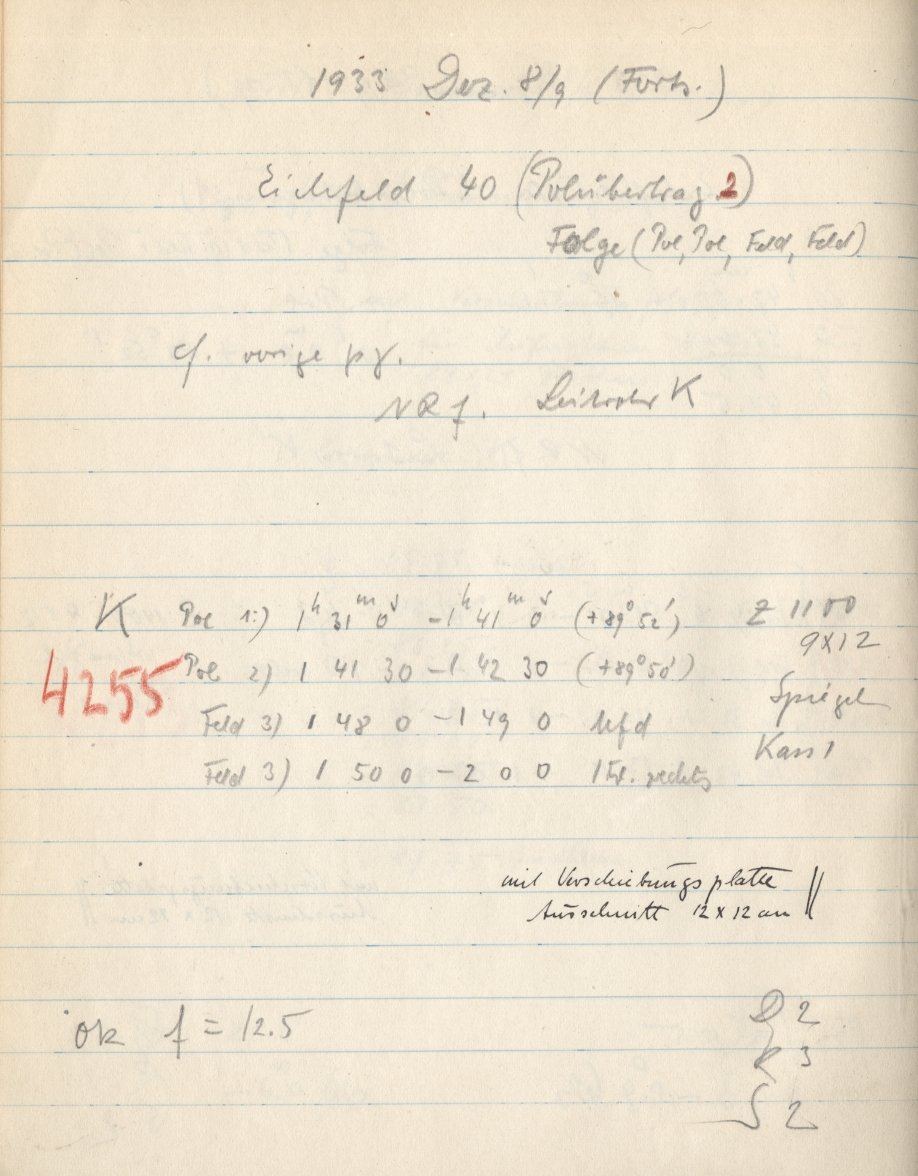 1933 Dez. 8/9 (Forts.)
Eichfeld 40 (Polübertrag. 2)
Folge (Pol, Pol, Feld, Feld)
cf. vorige pg.
NR f. Leitrohr K
K Pol 1:) 1h 31m 0s – 1h 41m 0s (+89° 52') Z 1100
9x12
4255 Pol 2) 1 41 30 – 1 42 30 (+89° 50')
Spiegel
Feld 3) 1 48 0 – 1 49 0 Mfd
Kass 1
Feld 3) 1 50 0 – 2 0 0 1 Fd. rechts
mit Verschiebungsplatte
Ausschnitt 12 x 12 cm
Ok f = 12.5
D 2
R 3
S 2